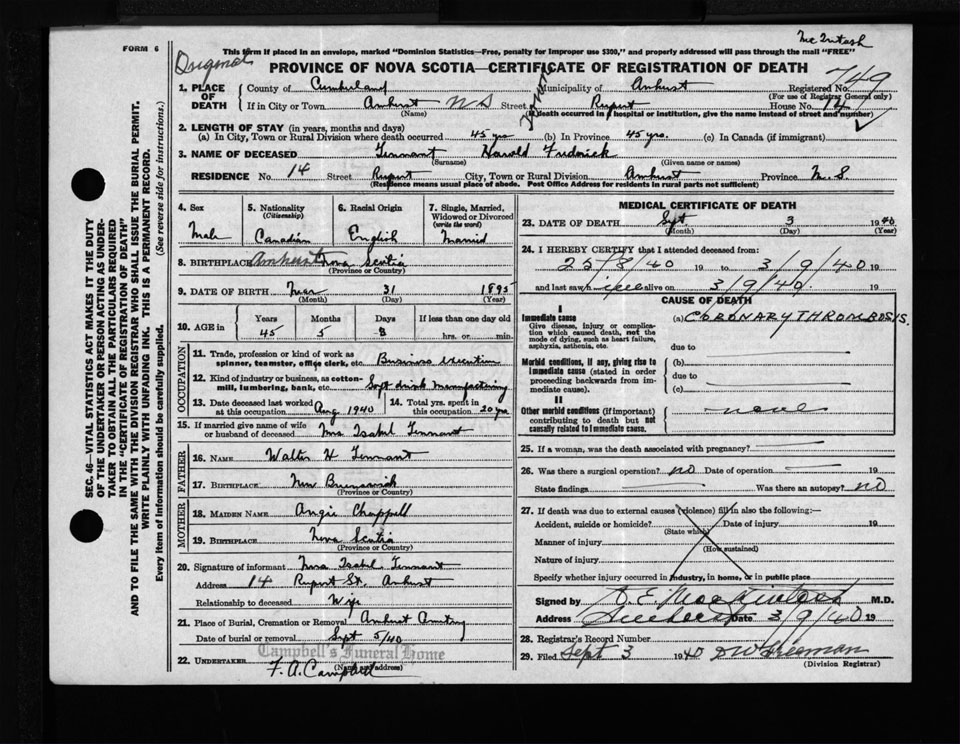 Mc Intosh
FORM 6
This form if placed in an envelope, marked "Dominion Statistics—Free, penalty for improper use $300," and properly addressed will pass through the mail "FREE"
Original
PROVINCE OF NOVA SCOTIA—CERTIFICATE OF REGISTRATION OF DEATH
749
1. PLACE OF DEATH
County of Cumberland Municipality of Amherst Registered No.
(For use of Registrar General only)
If in City or Town Amherst N S Street Rupert House No. 14
(Name) (If death occurred in hospital or institution, give the name instead of street and number)
2. LENGTH OF STAY (in years, months and days)
(a) In City, Town or Rural Division where death occurred 45 yrs (b) In Province 45 yrs. (c) In Canada (if immigrant)
3. NAME OF DECEASED Tennant Harold Fredrick
(Surname) (Given name or names)
RESIDENCE No. 14 Street Rupert City, Town or Rural Division Amherst Province N. S.
(Residence means usual place of abode. Post Office Address for residents in rural parts not sufficient)
4. Sex 5. Nationality (Citizenship) 6. Racial Origin 7. Single, Married, Widowed or Divorced (write the word)
Male Canadian English Married
8. BIRTHPLACE Amherst Nova Scotia
(Province or Country)
9. DATE OF BIRTH Mar 31 1895
(Month) (Day) (Year)
10. AGE in Years Months Days If less than one day old
45 5 3 hrs. or min.
OCCUPATION
11. Trade, profession or kind of work as spinner, teamster, office clerk, etc. Business executive
12. Kind of industry or business, as cotton-mill, lumbering, bank, etc. Soft drink Manufacturing
13. Date deceased last worked at this occupation Aug 1940 14. Total yrs. spent in this occupation 20 yrs
15. If married give name of wife or husband of deceased Mrs Isabel Tennant
FATHER
16. NAME Walter H Tennant
17. BIRTHPLACE New Brunswick
(Province or Country)
MOTHER
18. MAIDEN NAME Angie Chappell
19. BIRTHPLACE Nova Scotia
(Province or Country)
20. Signature of informant Mrs Isabel Tennant
Address 14 Rupert St. Amherst
Relationship to deceased Wife
21. Place of Burial, Cremation or Removal Amherst
Date of burial or removal Sept 5/40
Campbell's Funeral Home
22. UNDERTAKER F. A. Campbell
(Name and address)
MEDICAL CERTIFICATE OF DEATH
23. DATE OF DEATH Sept 3 1940
(Month) (Day) (Year)
24. I HEREBY CERTIFY that I attended deceased from:
25/8/40 19 to 3/9/40 19
and last saw h alive on 3/9/40. 19
CAUSE OF DEATH
Immediate cause (a) CORONARY THROMBOSIS.
Give disease, injury or complication which caused death, not the mode of dying, such as heart failure, asphyxia, asthenia, etc.
due to
Morbid conditions, if any, giving rise to immediate cause (stated in order proceeding backwards from immediate cause).
(b)
due to
(c)
II
Other morbid conditions (if important) contributing to death but not causally related to immediate cause. none
25. If a woman, was the death associated with pregnancy?
26. Was there a surgical operation? no Date of operation 19
State findings Was there an autopsy? no
27. If death was due to external causes (violence) fill in also the following:
Accident, suicide or homicide? Date of injury 19
(State which)
Manner of injury
(How sustained)
Nature of injury
Specify whether injury occurred in industry, in home, or in public place
Signed by M.D.
Address Date 3/9/40 19
28. Registrar's Record Number
29. Filed Sept 3 1940 D W Freeman
(Division Registrar)
SEC. 46—VITAL STATISTICS ACT MAKES IT THE DUTY
OF THE UNDERTAKER OR PERSON ACTING AS UNDER-
TAKER TO OBTAIN ALL THE PARTICULARS REQUIRED
IN THE "CERTIFICATE OF REGISTRATION OF DEATH"
AND TO FILE THE SAME WITH THE DIVISION REGISTRAR WHO SHALL ISSUE THE BURIAL PERMIT.
WRITE PLAINLY WITH UNFADING INK. THIS IS A PERMANENT RECORD.
Every item of information should be carefully supplied. (See reverse side for instructions.)